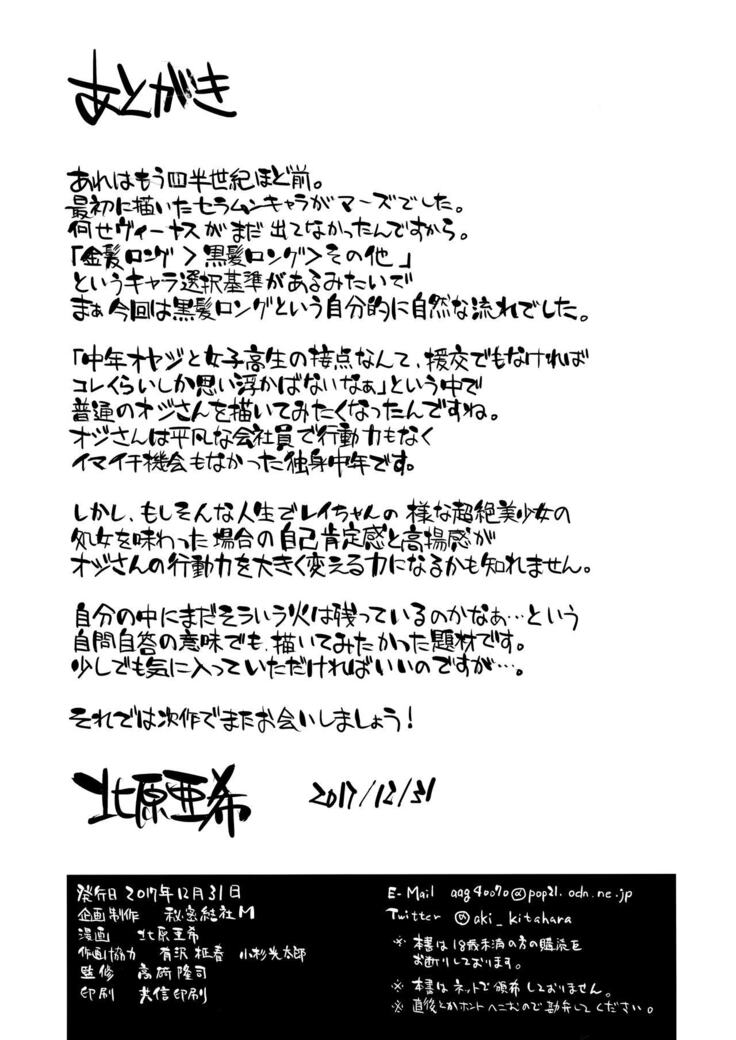 あとがき
あれはもう四半世紀ほど前。
最初に描いたセラムンキャラがマーズでした。
何せヴィーナスがまだ出てなかったんですから。
「金髪ロング＞黒髪ロング＞その他」
というキャラ選択基準があるみたいで
まぁ今回は黒髪ロングという自分的に自然な流れでした。
「中年オヤジと女子高生の接点なんて、援交でもなければ
コレくらいしか思い浮かばないなぁ」という中で
普通のオジさんを描いてみたくなったんですね。
オジさんは平凡な会社員で行動力もなく
イマイチ機会もなかった独身中年です。
しかし、もしそんな人生でレイちゃんの様な超絶美少女の
処女を味わった場合の自己肯定感と高揚感が
オジさんの行動力を大きく変える力になるかも知れません。
自分の中にまだそういう火は残っているのかなぁ…という
自問自答の意味でも、描いてみたかった題材です。
少しでも気に入っていただければいいのですが…。
それでは次作でまたお会いしましょう！
北原亜希 2017/12/31
発行日 2017年12月31日
企画制作 秘密結社M
漫画 北原亜希
作画協力 有沢 小杉光太郎
監修 高術隆司
印刷 大信印刷
E-Mail aag40070@pop21.odn.ne.jp
Twitter @aki_kitahara
※本書は18歳未満の方の購読を
お断りしております。
※本書はネットで頒布しておりません。
※直後とかホントヘコむので勘弁してください。